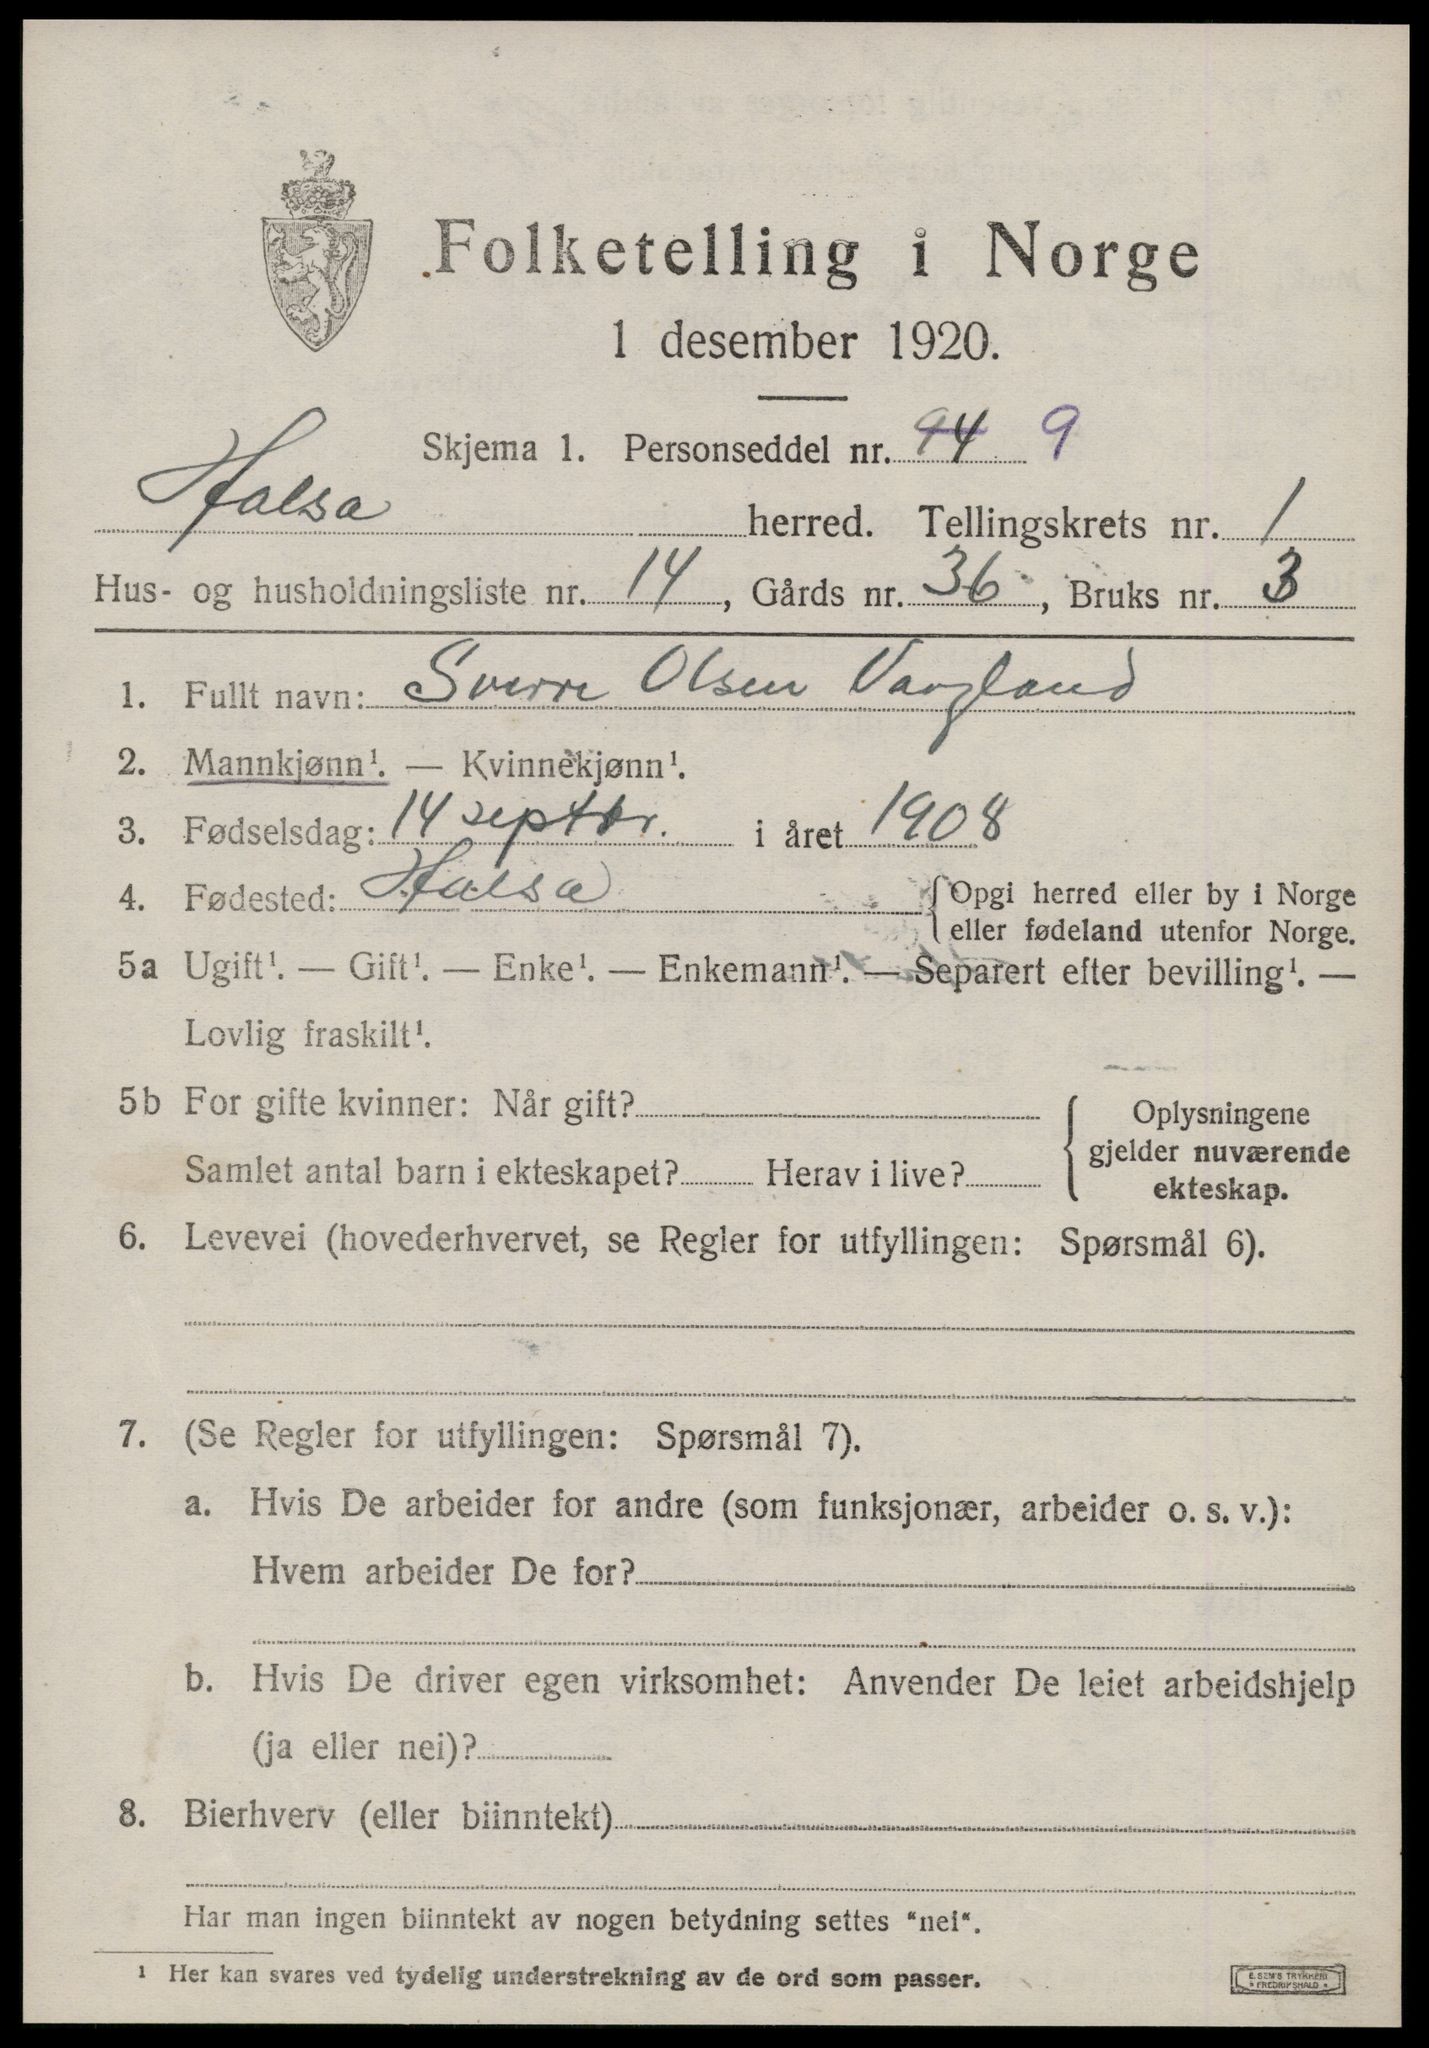 Folketelling i Norge
1 desember 1920.
Skjema 1. Personseddel nr. 94 9
Halsa herred. Tellingskrets nr. 1
Hus- og husholdningsliste nr. 14, Gårds nr. 36, Bruks nr. 3
1. Fullt navn: Sverre Olsen Vaagland
2. Mannkjønn¹. — Kvinnekjønn¹.
3. Fødselsdag: 14 septbr. i året 1908
4. Fødested: Halsa {Opgi herred eller by i Norge
eller fødeland utenfor Norge.
5a Ugift¹. — Gift¹. — Enke¹. — Enkemann¹. — Separert efter bevilling¹. —
Lovlig fraskilt¹.
5b For gifte kvinner: Når gift?
Samlet antal barn i ekteskapet? Herav i live?
Oplysningene
gjelder nuværende
ekteskap.
6. Levevei (hovederhvervet, se Regler for utfyllingen: Spørsmål 6).
7. (Se Regler for utfyllingen: Spørsmål 7).
a. Hvis De arbeider for andre (som funksjonær, arbeider o. s. v.):
Hvem arbeider De for?
b. Hvis De driver egen virksomhet: Anvender De leiet arbeidshjelp
(ja eller nei)?
8. Bierhverv (eller biinntekt)
Har man ingen biinntekt av nogen betydning settes "nei".
¹ Her kan svares ved tydelig understrekning av de ord som passer.
E. SEM'S TRYKKERI
• FREDRIKSHALD •